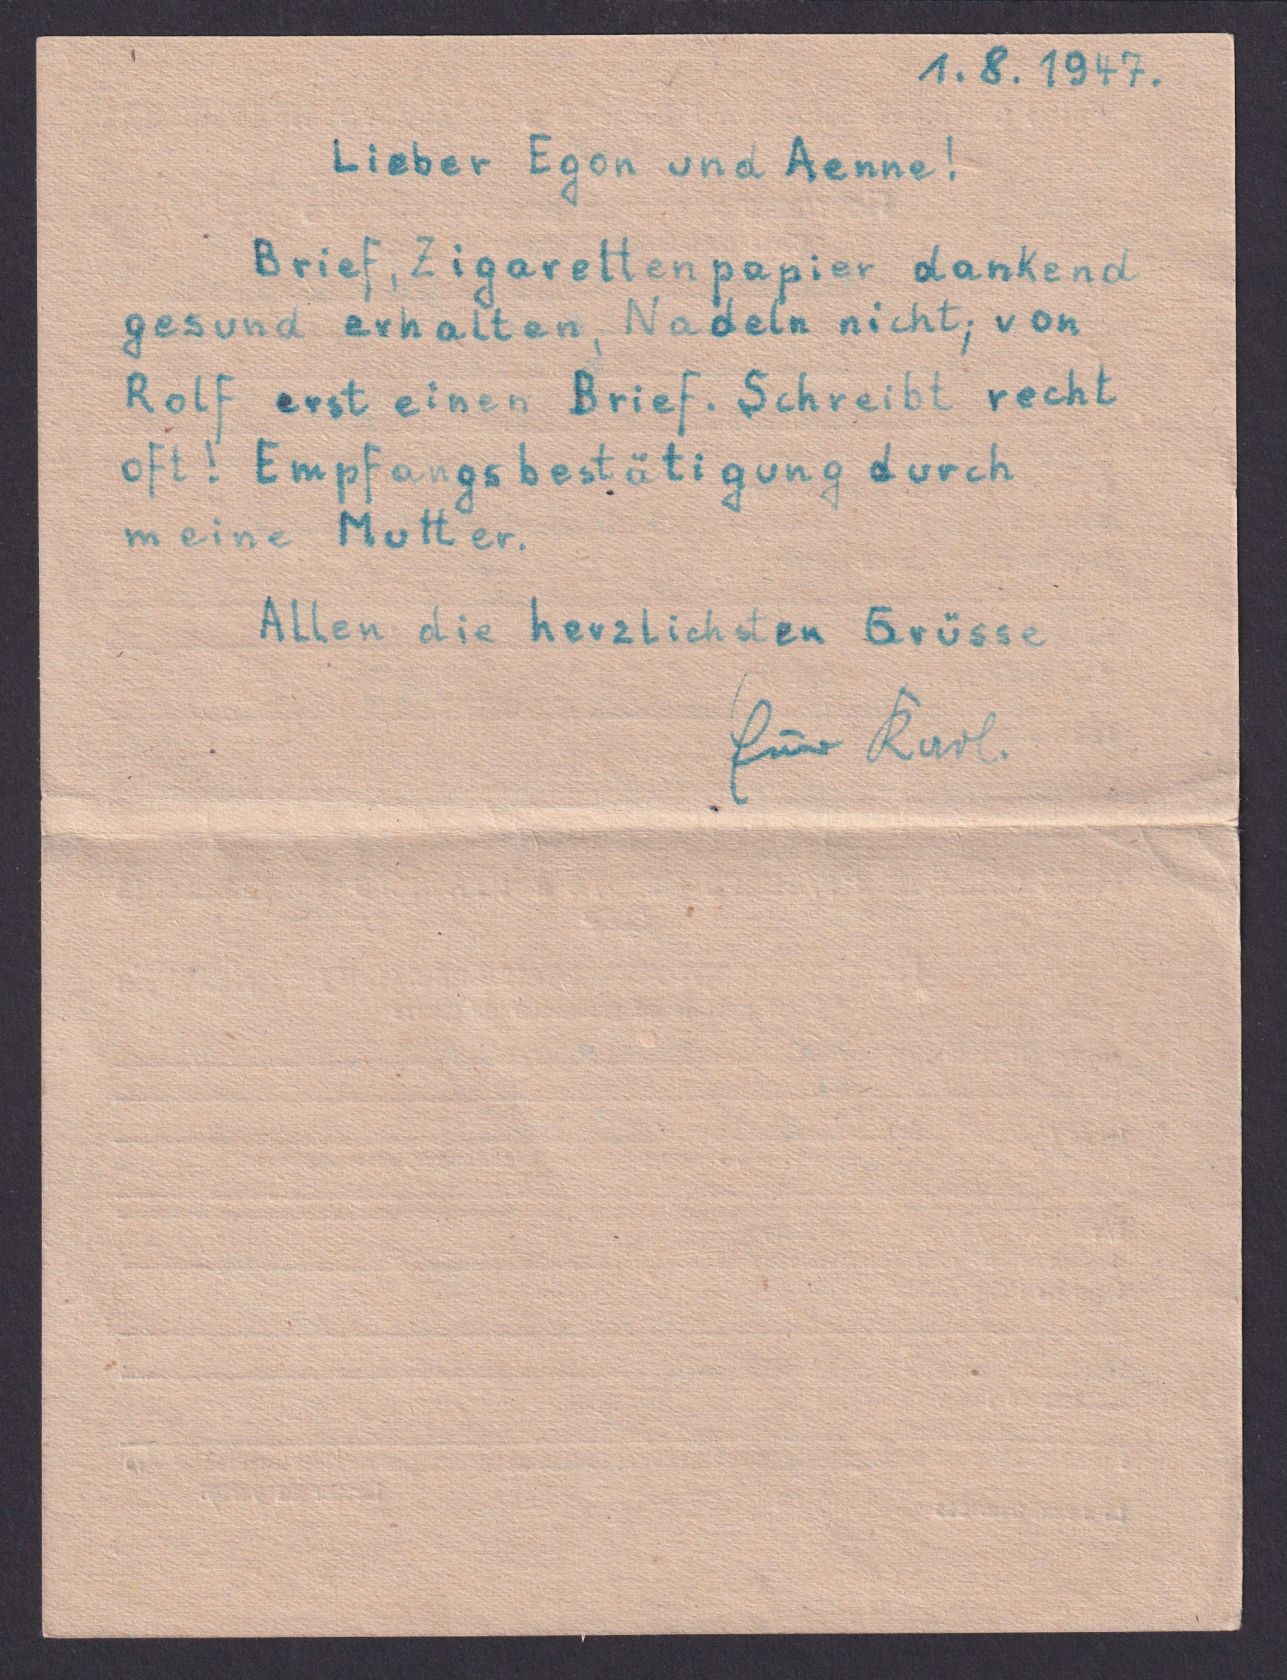 1. 8. 1947.
Lieber Egon und Aenne!
Brief, Zigarettenpapier dankend
gesund erhalten, Nadeln nicht, von
Rolf erst einen Brief. Schreibt recht
oft! Empfangsbestätigung durch
meine Mutter.
Allen die herzlichsten Grüsse
Euer Karl.